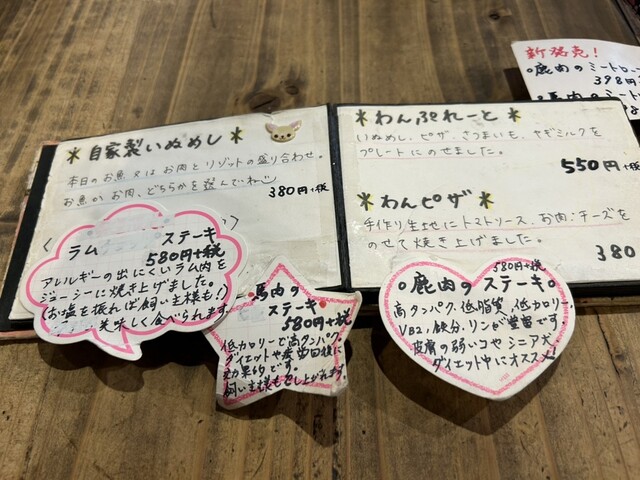 ＊自家製いぬめし＊
本日のお魚又はお肉とリゾットの盛り合わせ。
お魚かお肉、どちらかを選んでねじ
380円+税
ラム ステーキ
580円+税
アレルギーの出にくいラム肉を
ジューシーに焼き上げました。
(お塩を振れば飼い主様も!)
美味しく食べられます
馬肉の
ステーキ
580円+税
低カロリーで高タンパク。
ダイエットや疲労回復に
効果的です。
飼い主様も召し上がれます。
新発売!
鹿肉のミートロー
398円
馬肉のミート
＊わんぷれーと＊
いぬめし、ピザ、さつまいも、ヤギミルクを
プレートにのせました。
550円+税
＊わんピザ＊
手作り生地にトマトソース、お肉、チーズを
のせて焼き上げました。
380
580円+税
鹿肉のステーキ
高タンパク、低脂質、低カロリー、
VB2、鉄分、リンが豊富です。
皮膚の弱いコやシニア犬、
ダイエット中にオススメ!